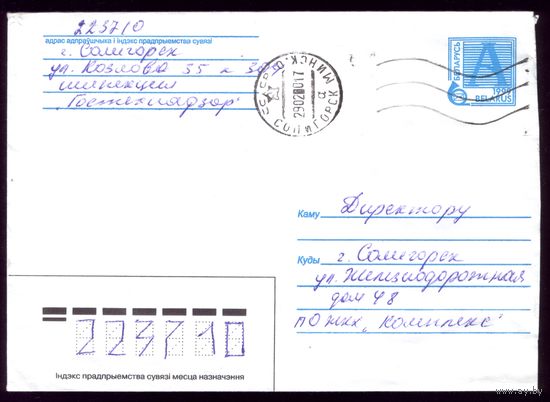 223710
адрас адпраўшчыка і індэкс прадпрыемства сувязі
г. Солигорск
ул. Козлова 35 к
инспекция
"Гостехнадзор"
СОЛИГОРСК МИНСК
29020017
БЕЛАРУСЬ
A
1998
BELARUS
Каму Директору
Куды г. Солигорск
ул. Железнодорожная
дом 48
ПО ЖКХ "Комплекс"
223710
Індэкс прадпрыемства сувязі месца назначэння
www.ay.by